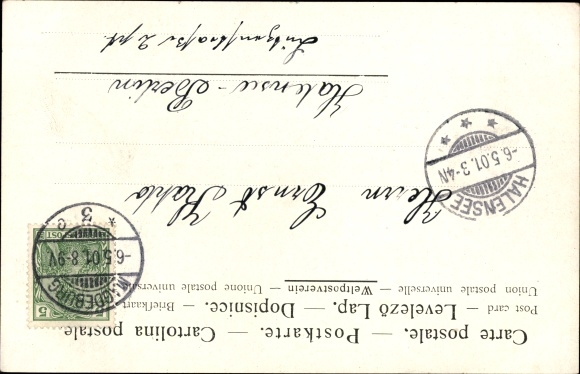 Carte postale. — Postkarte. — Cartolina postale
Post card — Levelező Lap. — Dopisnice. — Briefkaart
Union postale universelle — Weltpostverein — Unione postale universale
5
MAGDEBURG
-6.5.01.8-9V.
* 3 c
Herrn Ernst Kahlo
HALENSEE
-6.5.01.3-4N
* * *
Halensee - Berlin
2 pt